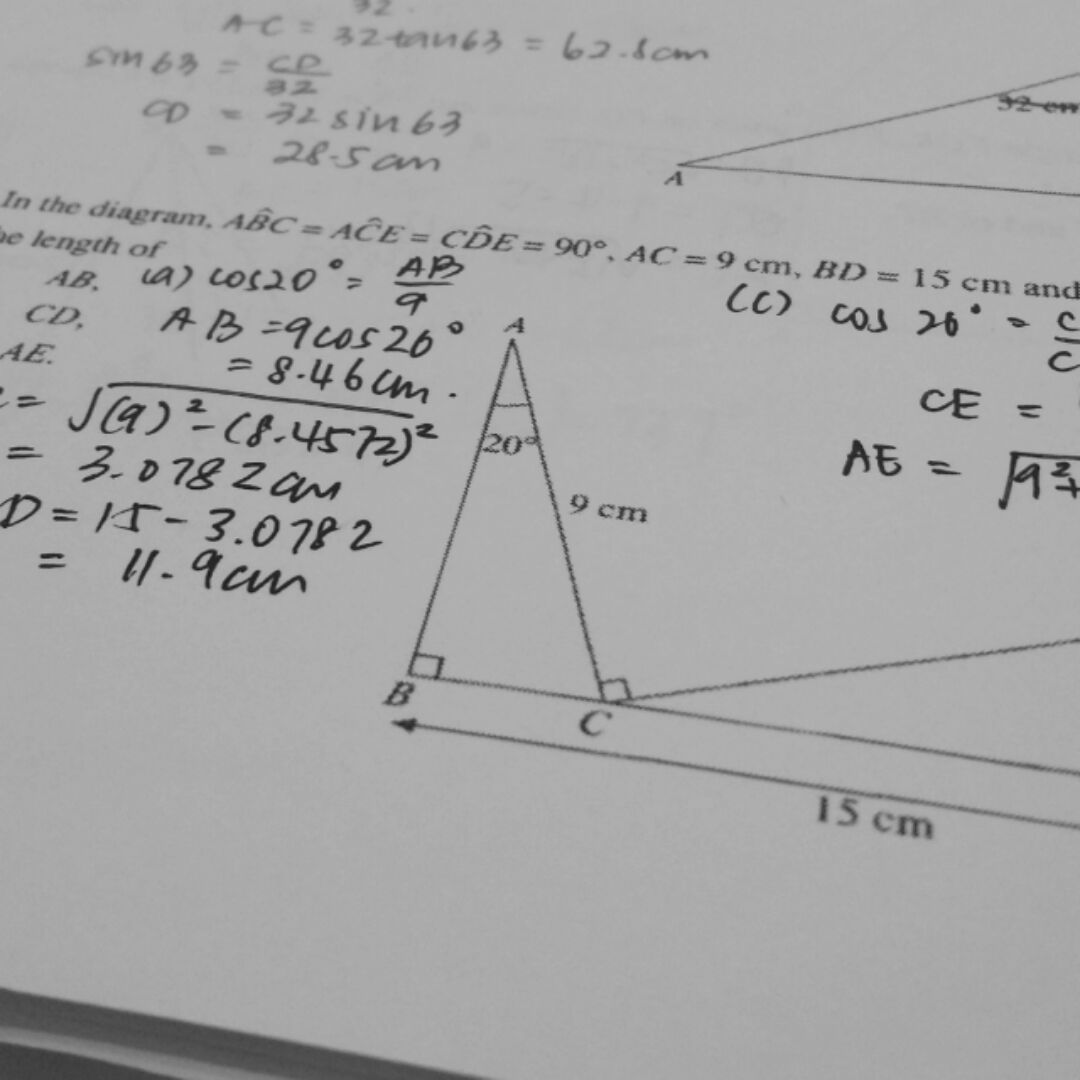 32
AC = 32tan63 = 62.8cm
sin 63 = CD/32
CD = 32 sin 63
= 28.5cm
32 cm
A
In the diagram, AB̂C = AĈE = CD̂E = 90°, AC = 9 cm, BD = 15 cm and
he length of
AB, (a) cos20° = AB/9
CD, AB = 9cos20°
AE. = 8.46cm.
= √(9)² - (8.4572)²
= 3.0782cm
D = 15 - 3.0782
= 11.9cm
(c) cos 20° = C/C
CE =
AE = √9²+
A
20°
9 cm
B
C
15 cm